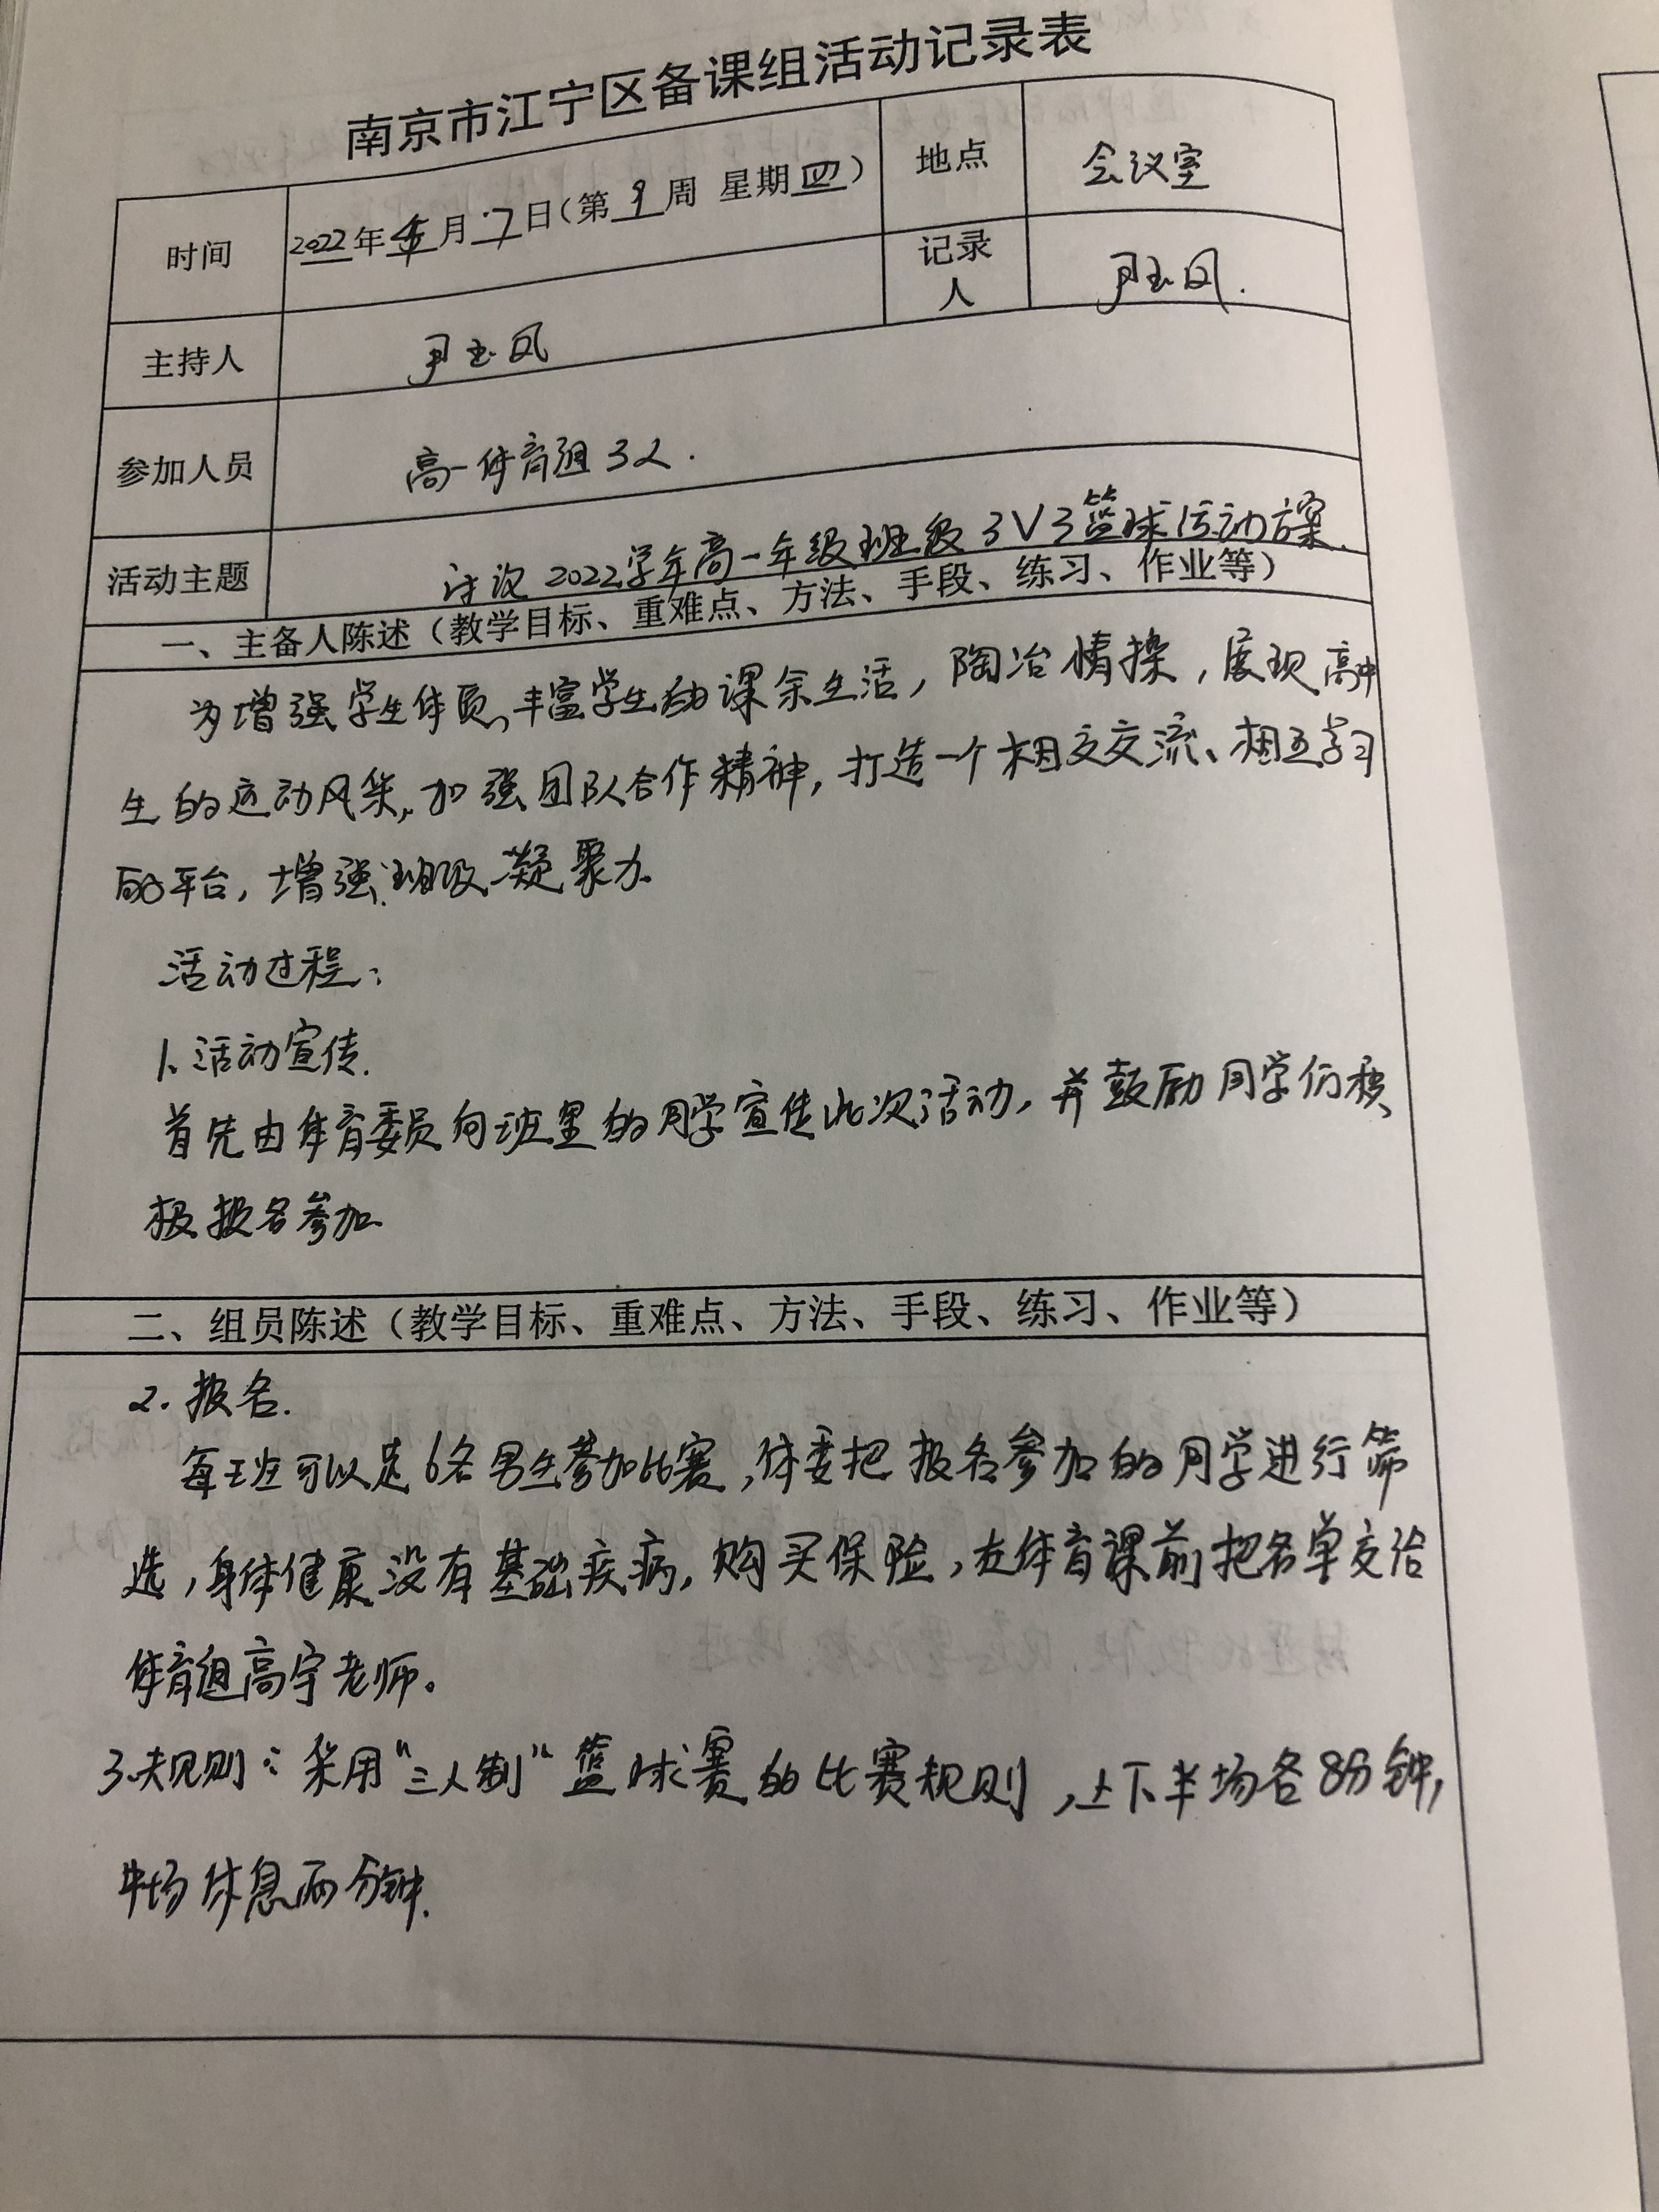 南京市江宁区备课组活动记录表
时间 2022年 月7日（第9周 星期四） 地点 会议室
记录人 尹玉凤.
主持人 尹玉凤
参加人员 高一体育组3人.
活动主题 讨议2022学年高一年级班级3V3篮球活动方案.
一、主备人陈述（教学目标、重难点、方法、手段、练习、作业等）
为增强学生体质,丰富学生 课余生活，陶冶情操，展现高中
生的运动风采,加强团队合作精神，打造一个相交交流、相互学习
的平台，增强班级凝聚力.
活动过程：
1、活动宣传.
首先由体育委员向班里的同学宣传此次活动，并鼓励同学们积
极报名参加.
二、组员陈述（教学目标、重难点、方法、手段、练习、作业等）
2.报名.
每班可以是6名男生参加比赛,体委把报名参加的同学进行筛
选，身体健康没有基础疾病，购买保险，在体育课前把名单交给
体育组高宇老师。
3.规则：采用“三人制”篮球赛的比赛规则，上下半场各8分钟，
半场休息两分钟.